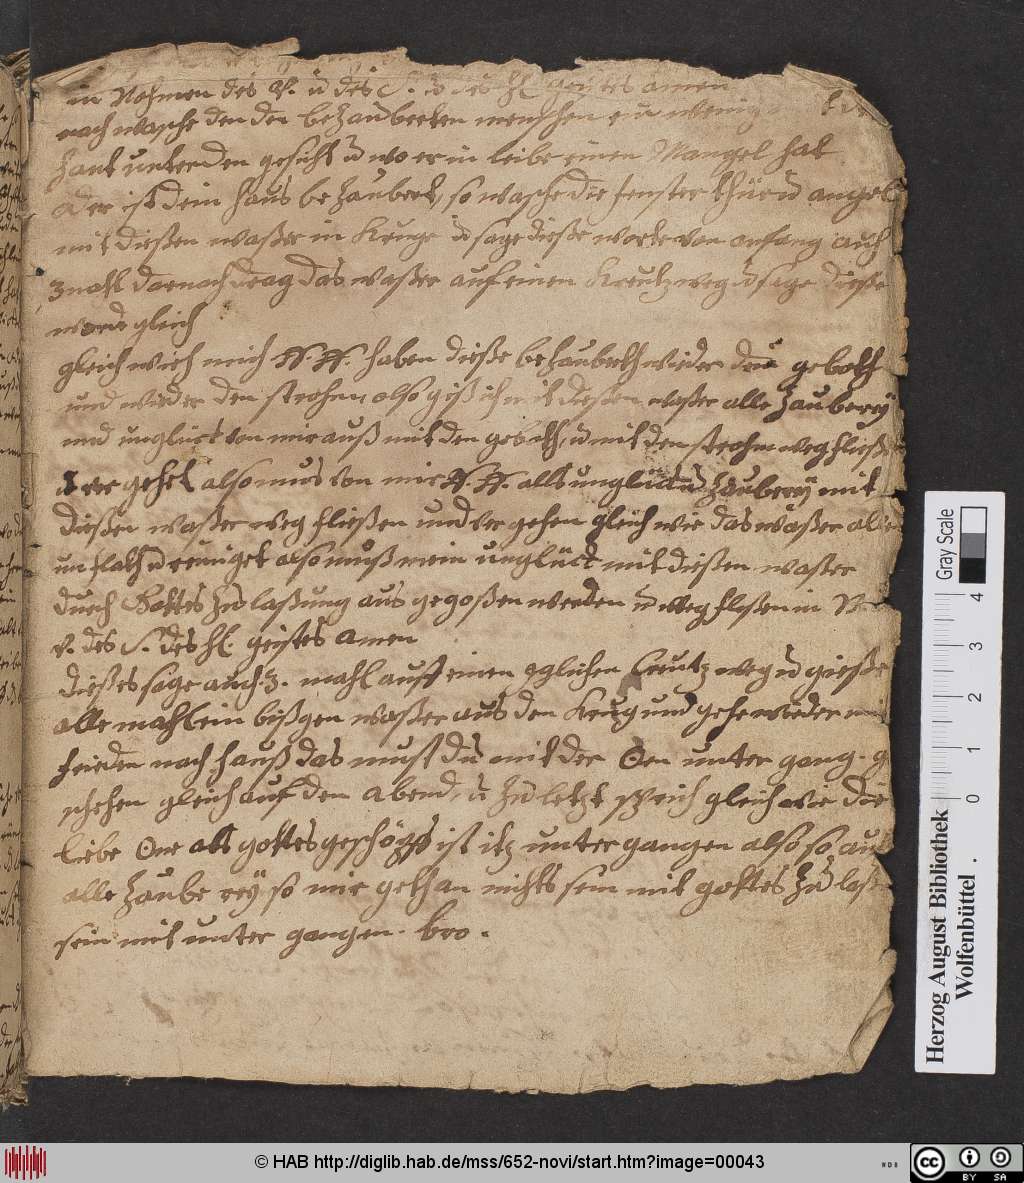 in Nahmen des V. u des S. u des hl geistes amen
nach wasche den den bezauberten menschen ein wenig
Hant unterden gesicht u wo er in leibe einen Mangel hat
oder ist dein haus bezaubert, so wasche die fenster thür u angel
mit dießen waßer in Kruge u sage dieße worte von anfang auch
3 mall darnach drag das waßer auf einen Kreutzweg u sage dieße
words gleich
gleich wieh mich N. N. haben dieße bezauberth wieder den geboth
und wieder den strohm, also giß ich mit dießen waßer alle Zauberey
und unglück von mir auß mit den geboth, u mit den strohm weg fließ
u ver gehet also mus von mir N. N. alls unglück u Zauberey mit
dießen waßer weg fließen und ver gehen gleich wie das waßer alle
un flath u reiniget also muß mein unglück mit dießen waßer
durch Gottes Zulaßung aus gegoßen werden u weg flißen in N
v. des S. des hl. geistes Amen
dießes sage auch 3. mahl auff einen glichen Creutz weg u gieße
alle mahl ein bißgen waßer aus den Krug und gehe wieder
frieden nach hauß das must du mit der Son unter gang. g
schehen gleich auf den abend, u zu letzt sprich gleich wie die
liebe Sone als gottes geschöpff ist itz unter gangen also so auch
alle Zaube rey so mir gethan nichts sein mit gottes Zu laße
sein mit unter gangen. bro.
Herzog August Bibliothek
Wolfenbüttel .
Gray Scale
0 1 2 3 4
© HAB http://diglib.hab.de/mss/652-novi/start.htm?image=00043
cc BY SA